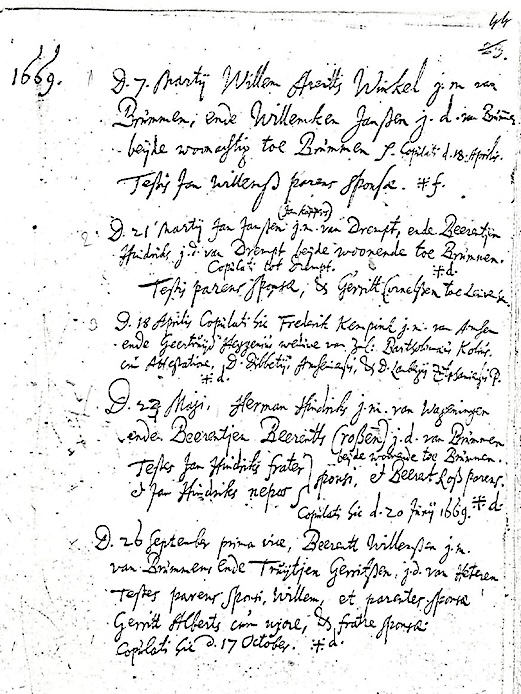 44
1669.
D. 7. Martij Willem Arentts Winkel j.m. van
Brummen, ende Willemken Janßen j.d. van Brummen
beijde woonachtig toe Brummen S. Copulati d. 18. Aprilis.
Testis Jan Willemß parens Sponsæ. #f.
(Jan Kappers)
2. D. 21 Martij Jan Janßen j.m. van Drempt, ende Beerentjen
Hindriks j.d. van Drempt beijde woonende toe Brummen.
Copulati tot Drempt. #d.
Testis parens Sponsæ, & Gerritt Cornelßen toe
D. 18 Aprilis Copulati hic Frederik Kempink j.m. van
ende Geertruijd weduwe van Bartholomæus
cum Attestatione, D. & D.
#d.
D. 23 Maji. Herman Hindriks j.m. van Wageningen
enden Beerentjen Beerentts (Roßen) j.d. van Brummen
beijde woonende toe Brummen.
Testes Jan Hindriks frater } sponsi, et Beerent Roß parens.
& Jan Hindriks nepos
Copulati hic d. 20 Junij 1669. #d.
D. 26 September prima vice, Beerentt Willemßen j.m.
van Brummen ende Truijtjen Gerritßen, j.d. van Heteren
Testes parens Sponsi, Willem, et parentes Sponsæ
Gerritt Alberts cum uxore, & fratre sponsæ
Copulati hic d. 17 October. #d.